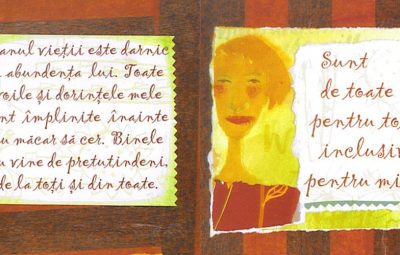 anul vieții este darnic
abundența lui. Toate
oile și dorințele mele
nt împlinite înainte
u măcar să cer. Binele
u vine de pretutindeni,
de la toți și din toate.
Sunt
de toate
pentru to
inclusiv
pentru mi